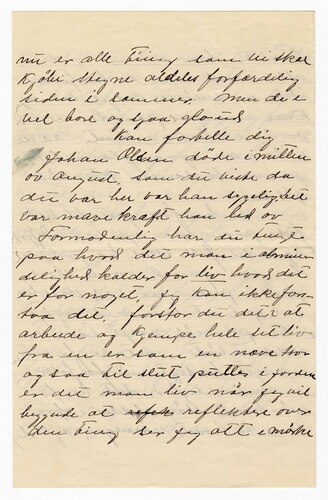 nu er alle ting som vi skal
kjøbe stegne aldeles forfærdelig
siden i sommer. Men det e
vel bare og gaa
Kan fortelle dig
Johan Olsen døde i mitten
av August. som du viste da
du var her var han sygelighet
var mave kræft han led av
Formodentlig har du tenkt
paa hvad det man i almin
delighed kalder for liv hvad det
er for noget, jeg kan ikke for
staa det. forstår du det? at
arbeide og kjempe hele sit liv
fra en er som en neve stor
og saa til slut puttes i jorden
er det man liv når jeg vil
begynde at reflektere over
den ting ser jeg alt i mørke